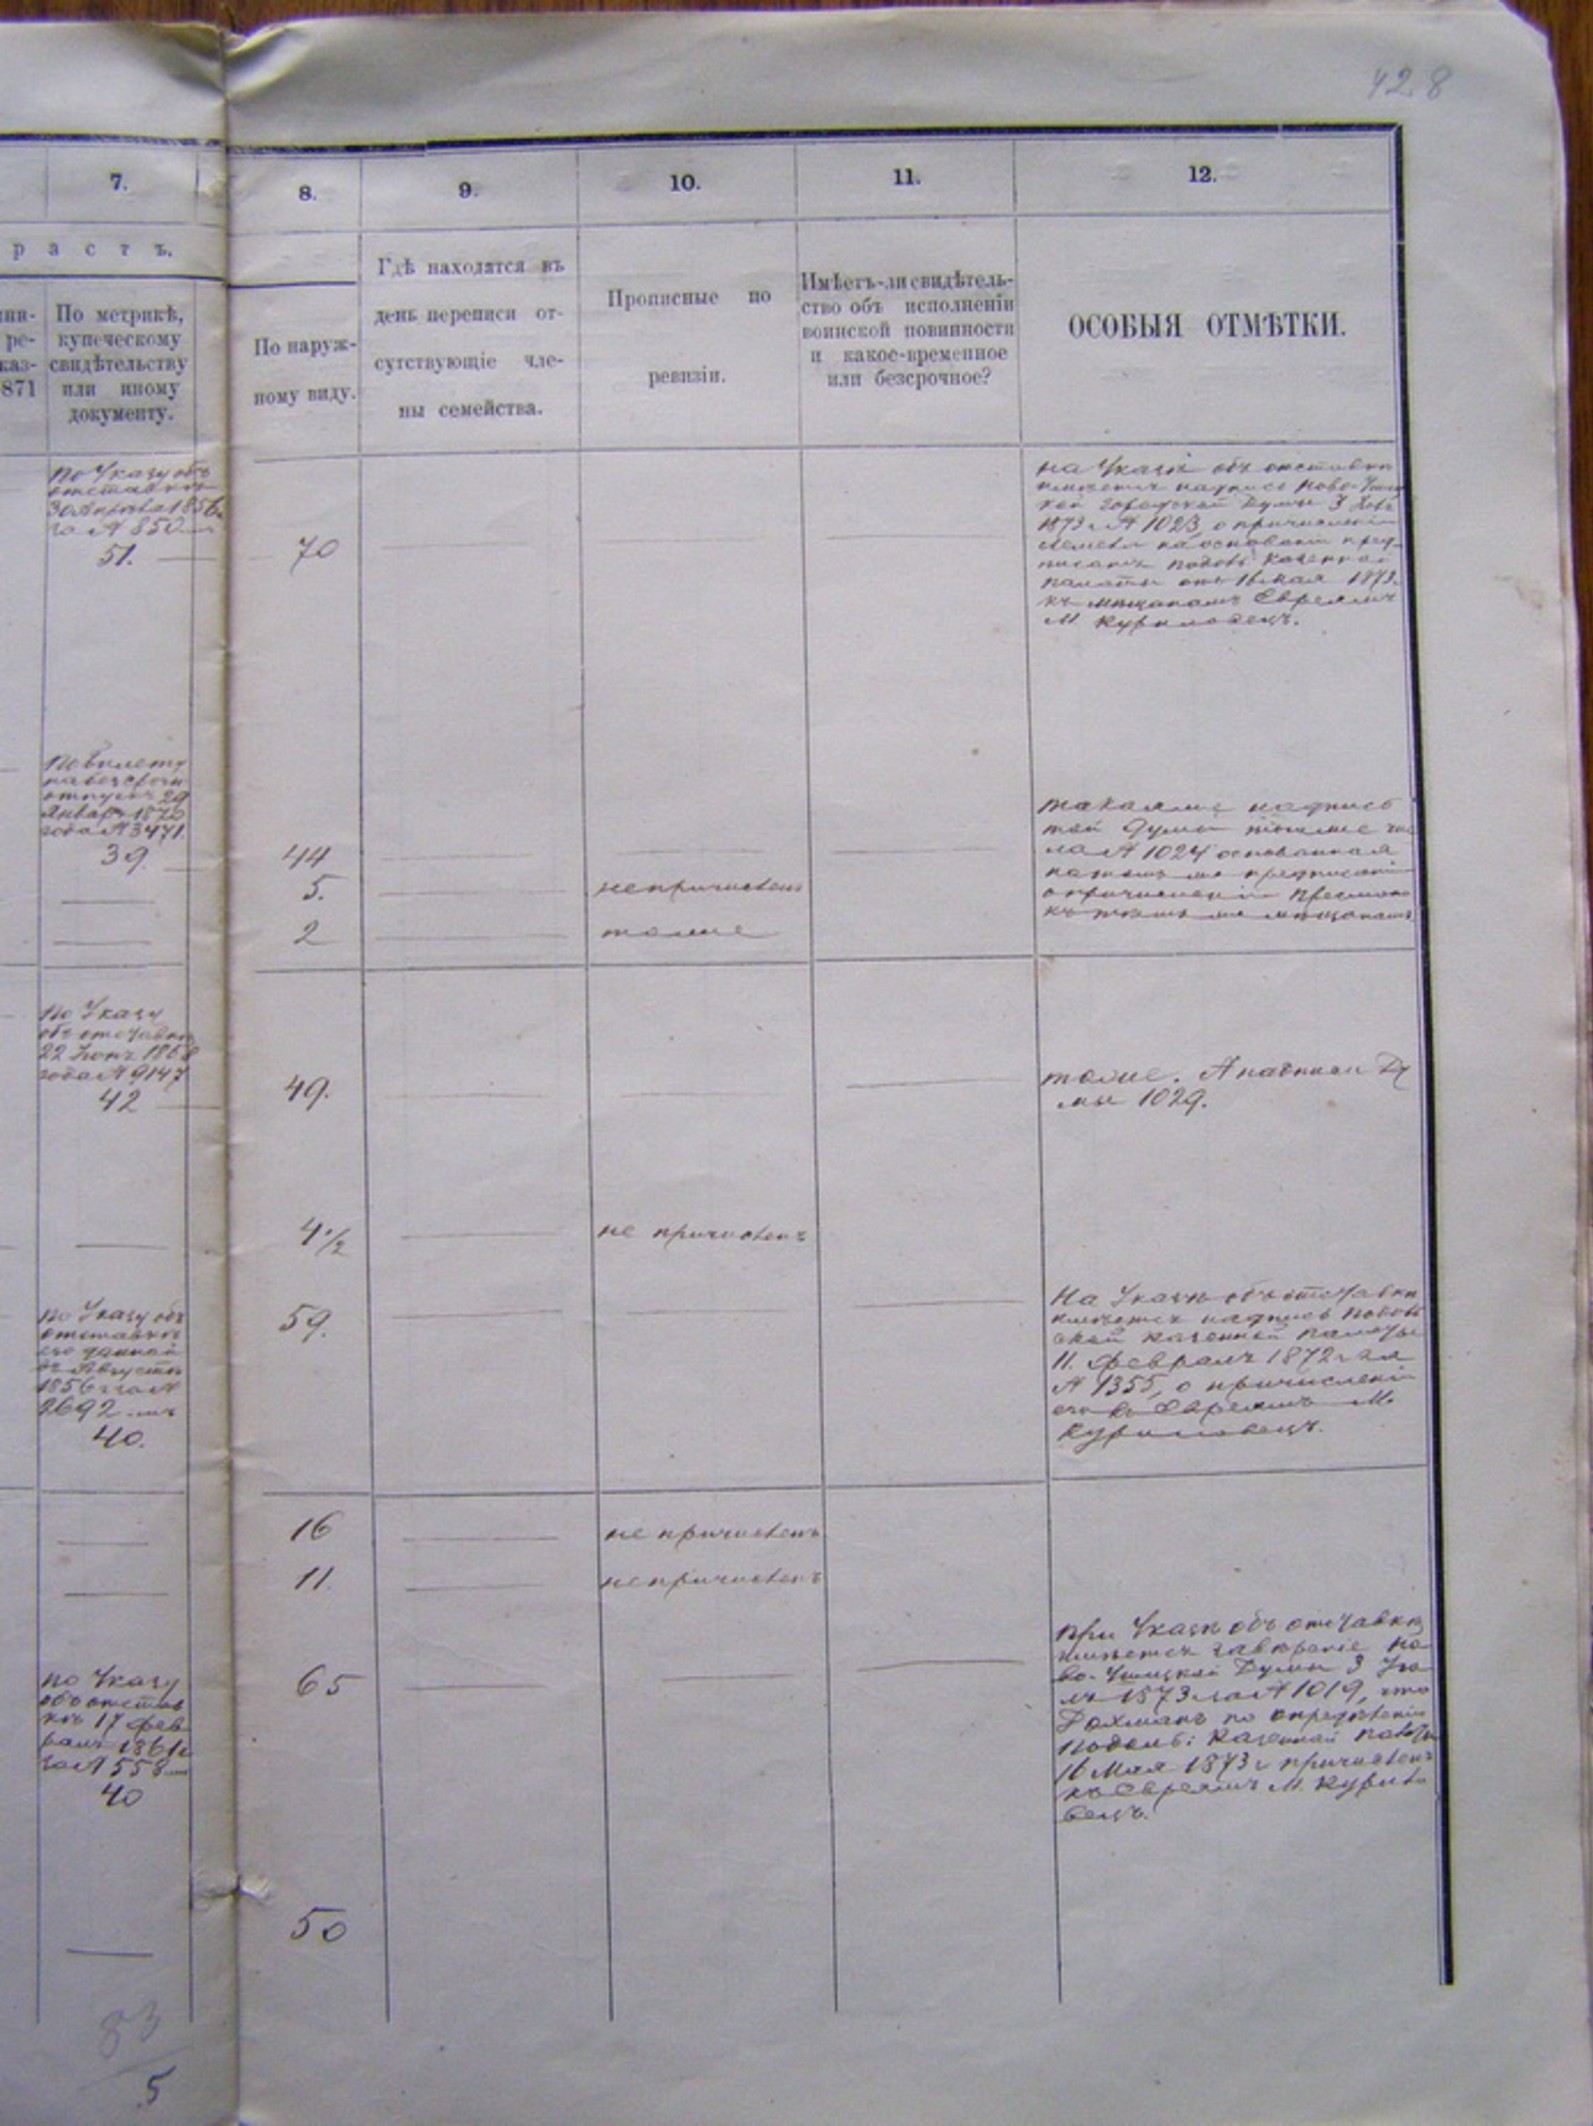 42.8
7.
8.
9.
10.
11.
12.
р а с т ъ.
ре-
каз-
1871
По метрикѣ,
купеческому
свидѣтельству
или иному
документу.
По наруж-
ному виду.
Гдѣ находятся въ
день переписи от-
сутствующіе чле-
ны семейства.
Прописные по
ревизіи.
Имѣетъ-ли свидѣтель-
ство объ исполненіи
воинской повинности
и какое-временное
или безсрочное?
ОСОБЫЯ ОТМѢТКИ.
по Указу объ
отставкѣ
30 1856
за № 850
51.
70
на Указѣ объ отставкѣ
имѣется надпись Ново-
кой городской Думы 3
1873 г. № 1023, о причисленіи
на основаніи пред-
писанія Подоль: Казенной
палаты отъ 16 мая 1873 г.
къ мѣщанамъ Евреямъ
М. Куриловецъ.
По билету
на безсрочн
отпускъ 29
Январ. 1870
года № 3471.
39.
44
5.
непричисленъ
2
тоже
такаяже надпись
той Думы
№ 1024 основанная
на томъ же предписаніи
о причисленіи
къ тѣмъ же мѣщанамъ
По Указу
объ отставкѣ
22 1868
года № 9147
42
49.
тоже. № надписи Ду
мы 1029.
4 1/2
не причисленъ
по Указу объ
отставкѣ
его данной
въ Августѣ
1856 г. за №
2692
40.
59.
На Указѣ объ отставкѣ
имѣется надпись Подоль
ской Казенной Палаты
11. Февраля 1872 г. за
№ 1355, о причисленіи
его къ Евреямъ М.
Куриловецъ.
16
не причисленъ
11.
непричисленъ
по Указу
объ отстав
кѣ 17 Фев
раля 1861 г
за № 558
40
65
при Указѣ объ отставкѣ
имѣется завѣреніе Но-
во-Ушицкой Думы 3
1873 г. за № 1019, что
по опредѣленію
Подоль: Казенной Палаты
16 Мая 1873 г. причисленъ
къ Евреямъ М. Курило
вецъ.
50
83
5